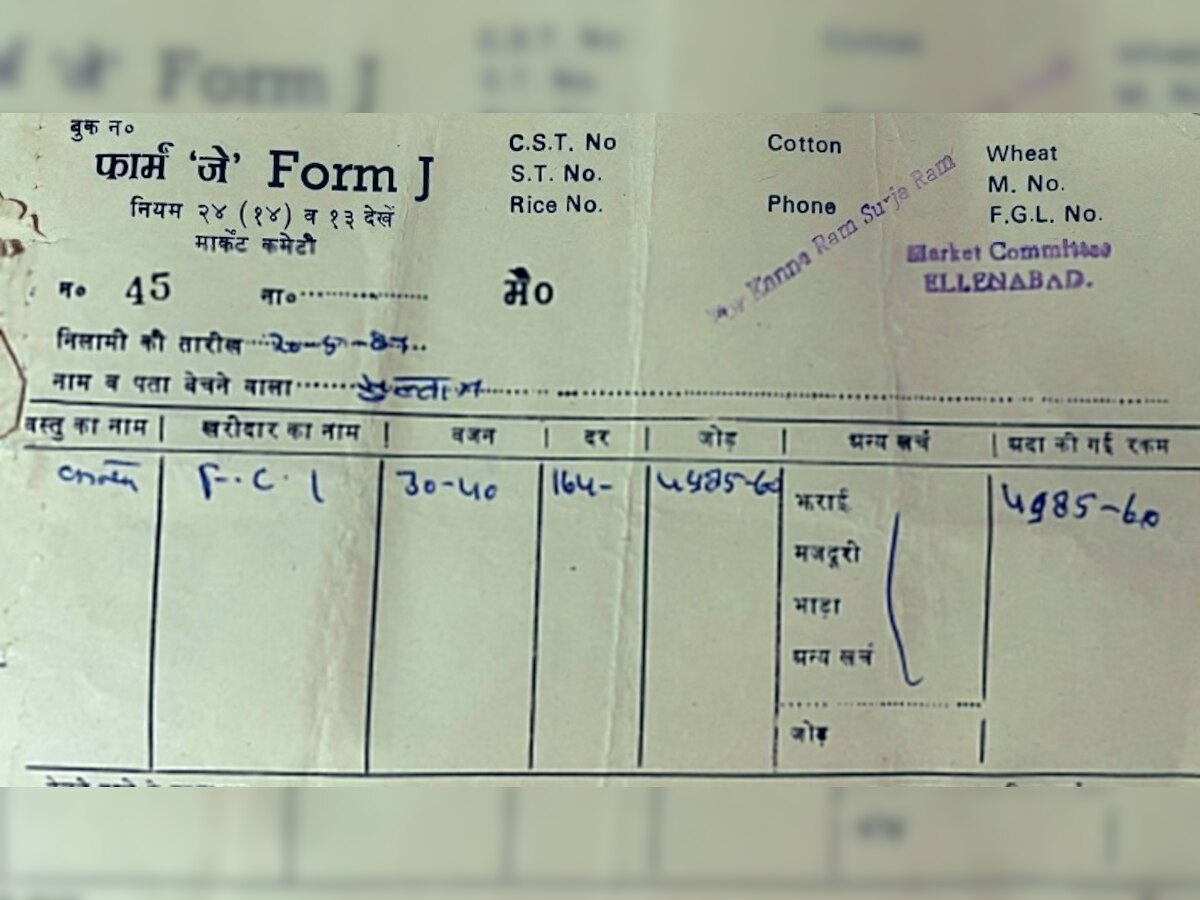 बुक न०
फार्म 'जे' Form J
नियम २४ (१४) व १३ देखें
मार्केट कमेटी
C.S.T. No
S.T. No.
Rice No.
Cotton
Phone
Wheat
M. No.
F.G.L. No.
Kanna Ram Surja Ram
Market Committee
ELLENABAD.
न० 45 ना०............ मै०
निलामी की तारीख
नाम व पता बेचने वाला
वस्तु का नाम | खरीदार का नाम | वजन | दर | जोड़ | अन्य खर्च | अदा की गई रकम
F.C.I 30-40 164-
भराई
मजदूरी
भाड़ा
अन्य खर्च
जोड़